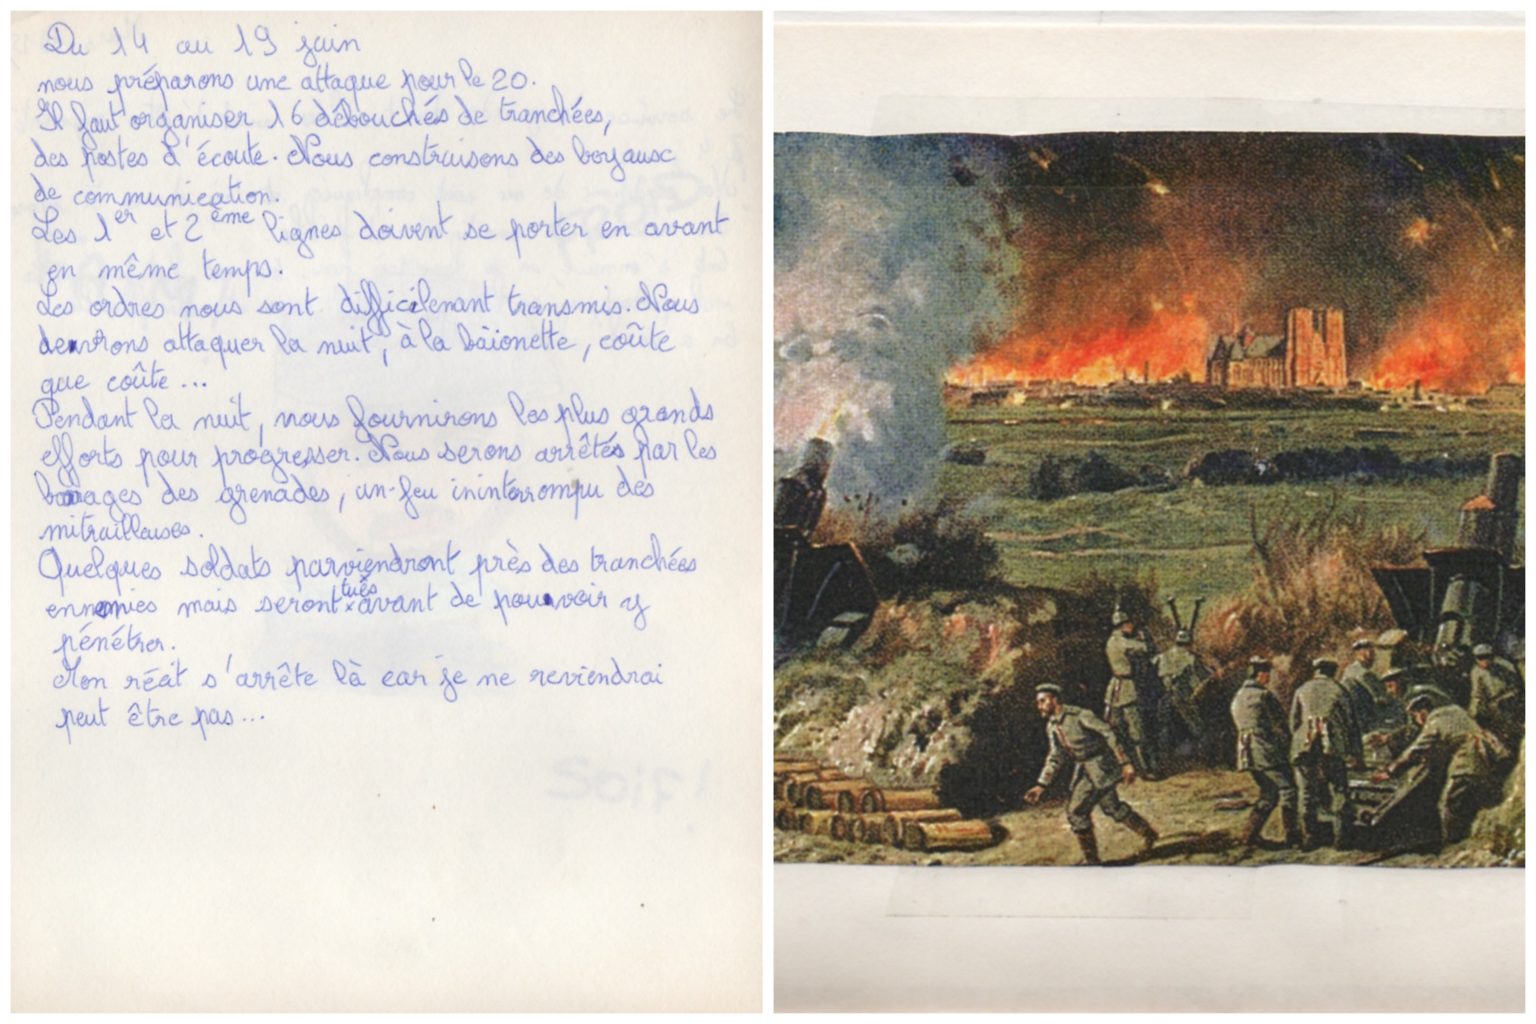 Du 14 au 19 juin
nous préparons une attaque pour le 20.
Il faut organiser 16 débouchés de tranchées,
des postes d'écoute. Nous construisons des boyaux
de communication.
Les 1er et 2ème lignes doivent se porter en avant
en même temps.
Les ordres nous sont difficilenant transmis. Nous
devrons attaquer la nuit, à la bàionette, coûte
que coûte...
Pendant la nuit, nous fournirons les plus grands
efforts pour progresser. Nous serons arrêtés par les
barrages des grenades, un feu ininterrompu des
mitrailleuses.
Quelques soldats parviendront près des tranchées
ennemies mais seront tués avant de pouvoir y
pénétrer.
Mon récit s'arrête là car je ne reviendrai
peut être pas...